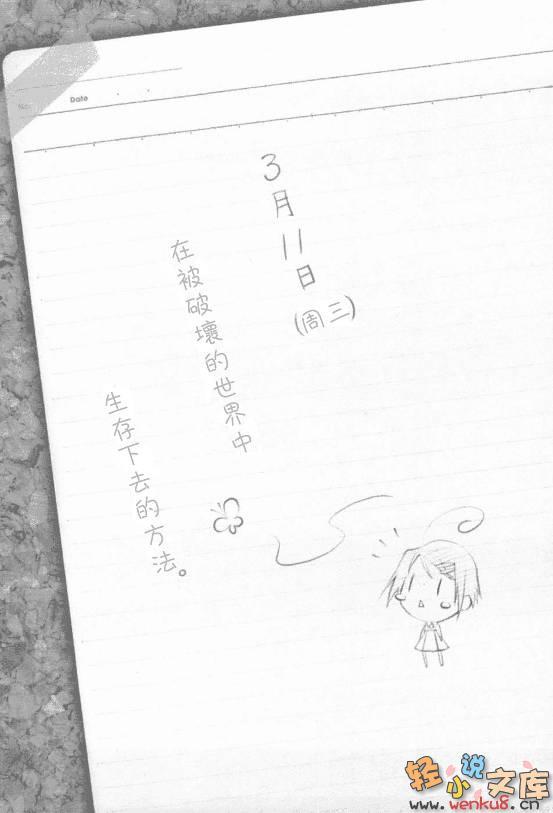 No.
Date
3月11日(周三)
在被破壞的世界中
生存下去的方法。
轻小说文库
www.wenku8.cn